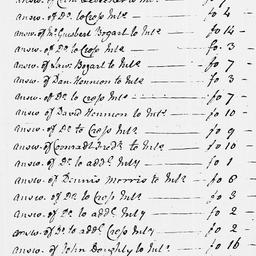 answ. of Do. to Cross Ints — fo 4
answ. of Mr. Guesbert Bogart to Ints fo 14
answ. of Do. to Cross Ints — fo. 3
answ. of Laws. Bogart to Ints — fo 7
answ. of Dan. Hennion to Ints — fo 3
answ. of Do. to Cross Ints — fo 7
answ. of David Hennion to Ints — fo 10
answ. of Do. to Cross Ints — fo 9
answ. of Conradt Fredk. to Ints — fo 10
answ. of Do. to addl. Inty — fo 1
answ. of Dennis Morris to Ints — fo 6
answ. of Do. to Cross Ints — fo 3
answ. of Do. to addl. Inty — fo 2
answ. of Do. to addl. Cross Inty — fo 2
answ. of John Doughty to Ints — fo 16